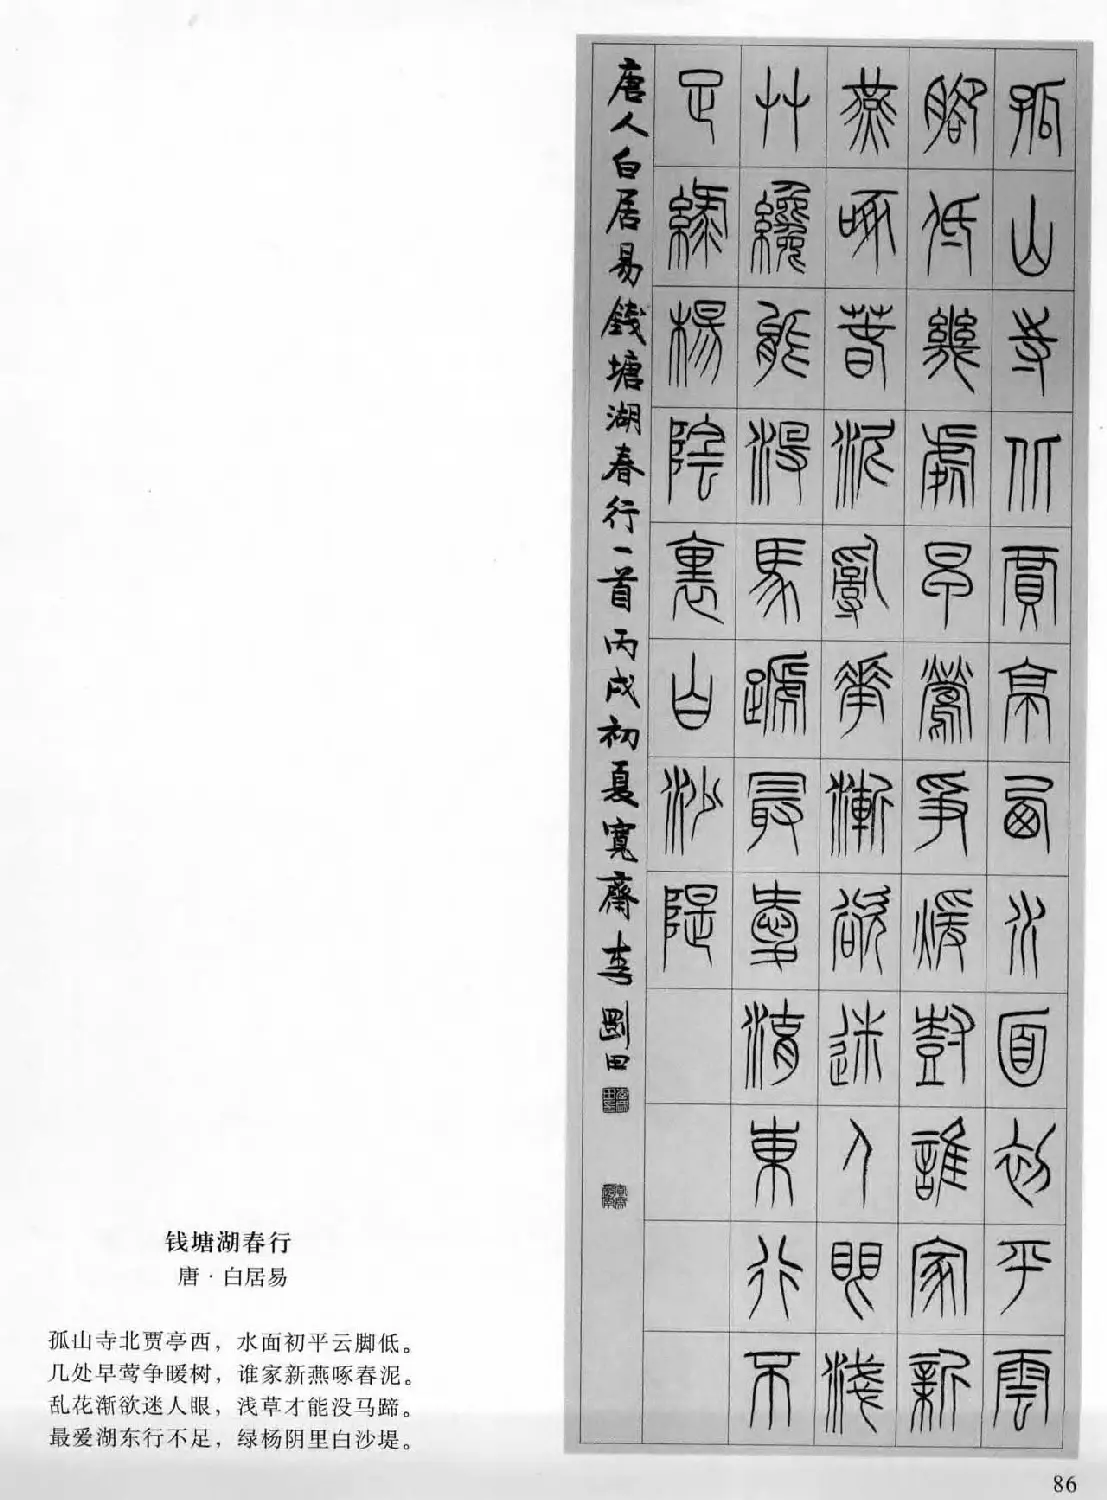 孤山寺北賈亭西水面初平雲
腳低幾處早鶯爭暖樹誰家新
燕啄春泥亂花漸欲迷人眼淺
艸纔能沒馬蹏最愛湖東行不
足綠楊陰裏白沙隄
唐人白居易錢塘湖春行一首丙戌初夏寬齋李剛田
钱塘湖春行
唐·白居易
孤山寺北贾亭西，水面初平云脚低。
几处早莺争暖树，谁家新燕啄春泥。
乱花渐欲迷人眼，浅草才能没马蹄。
最爱湖东行不足，绿杨阴里白沙堤。
86